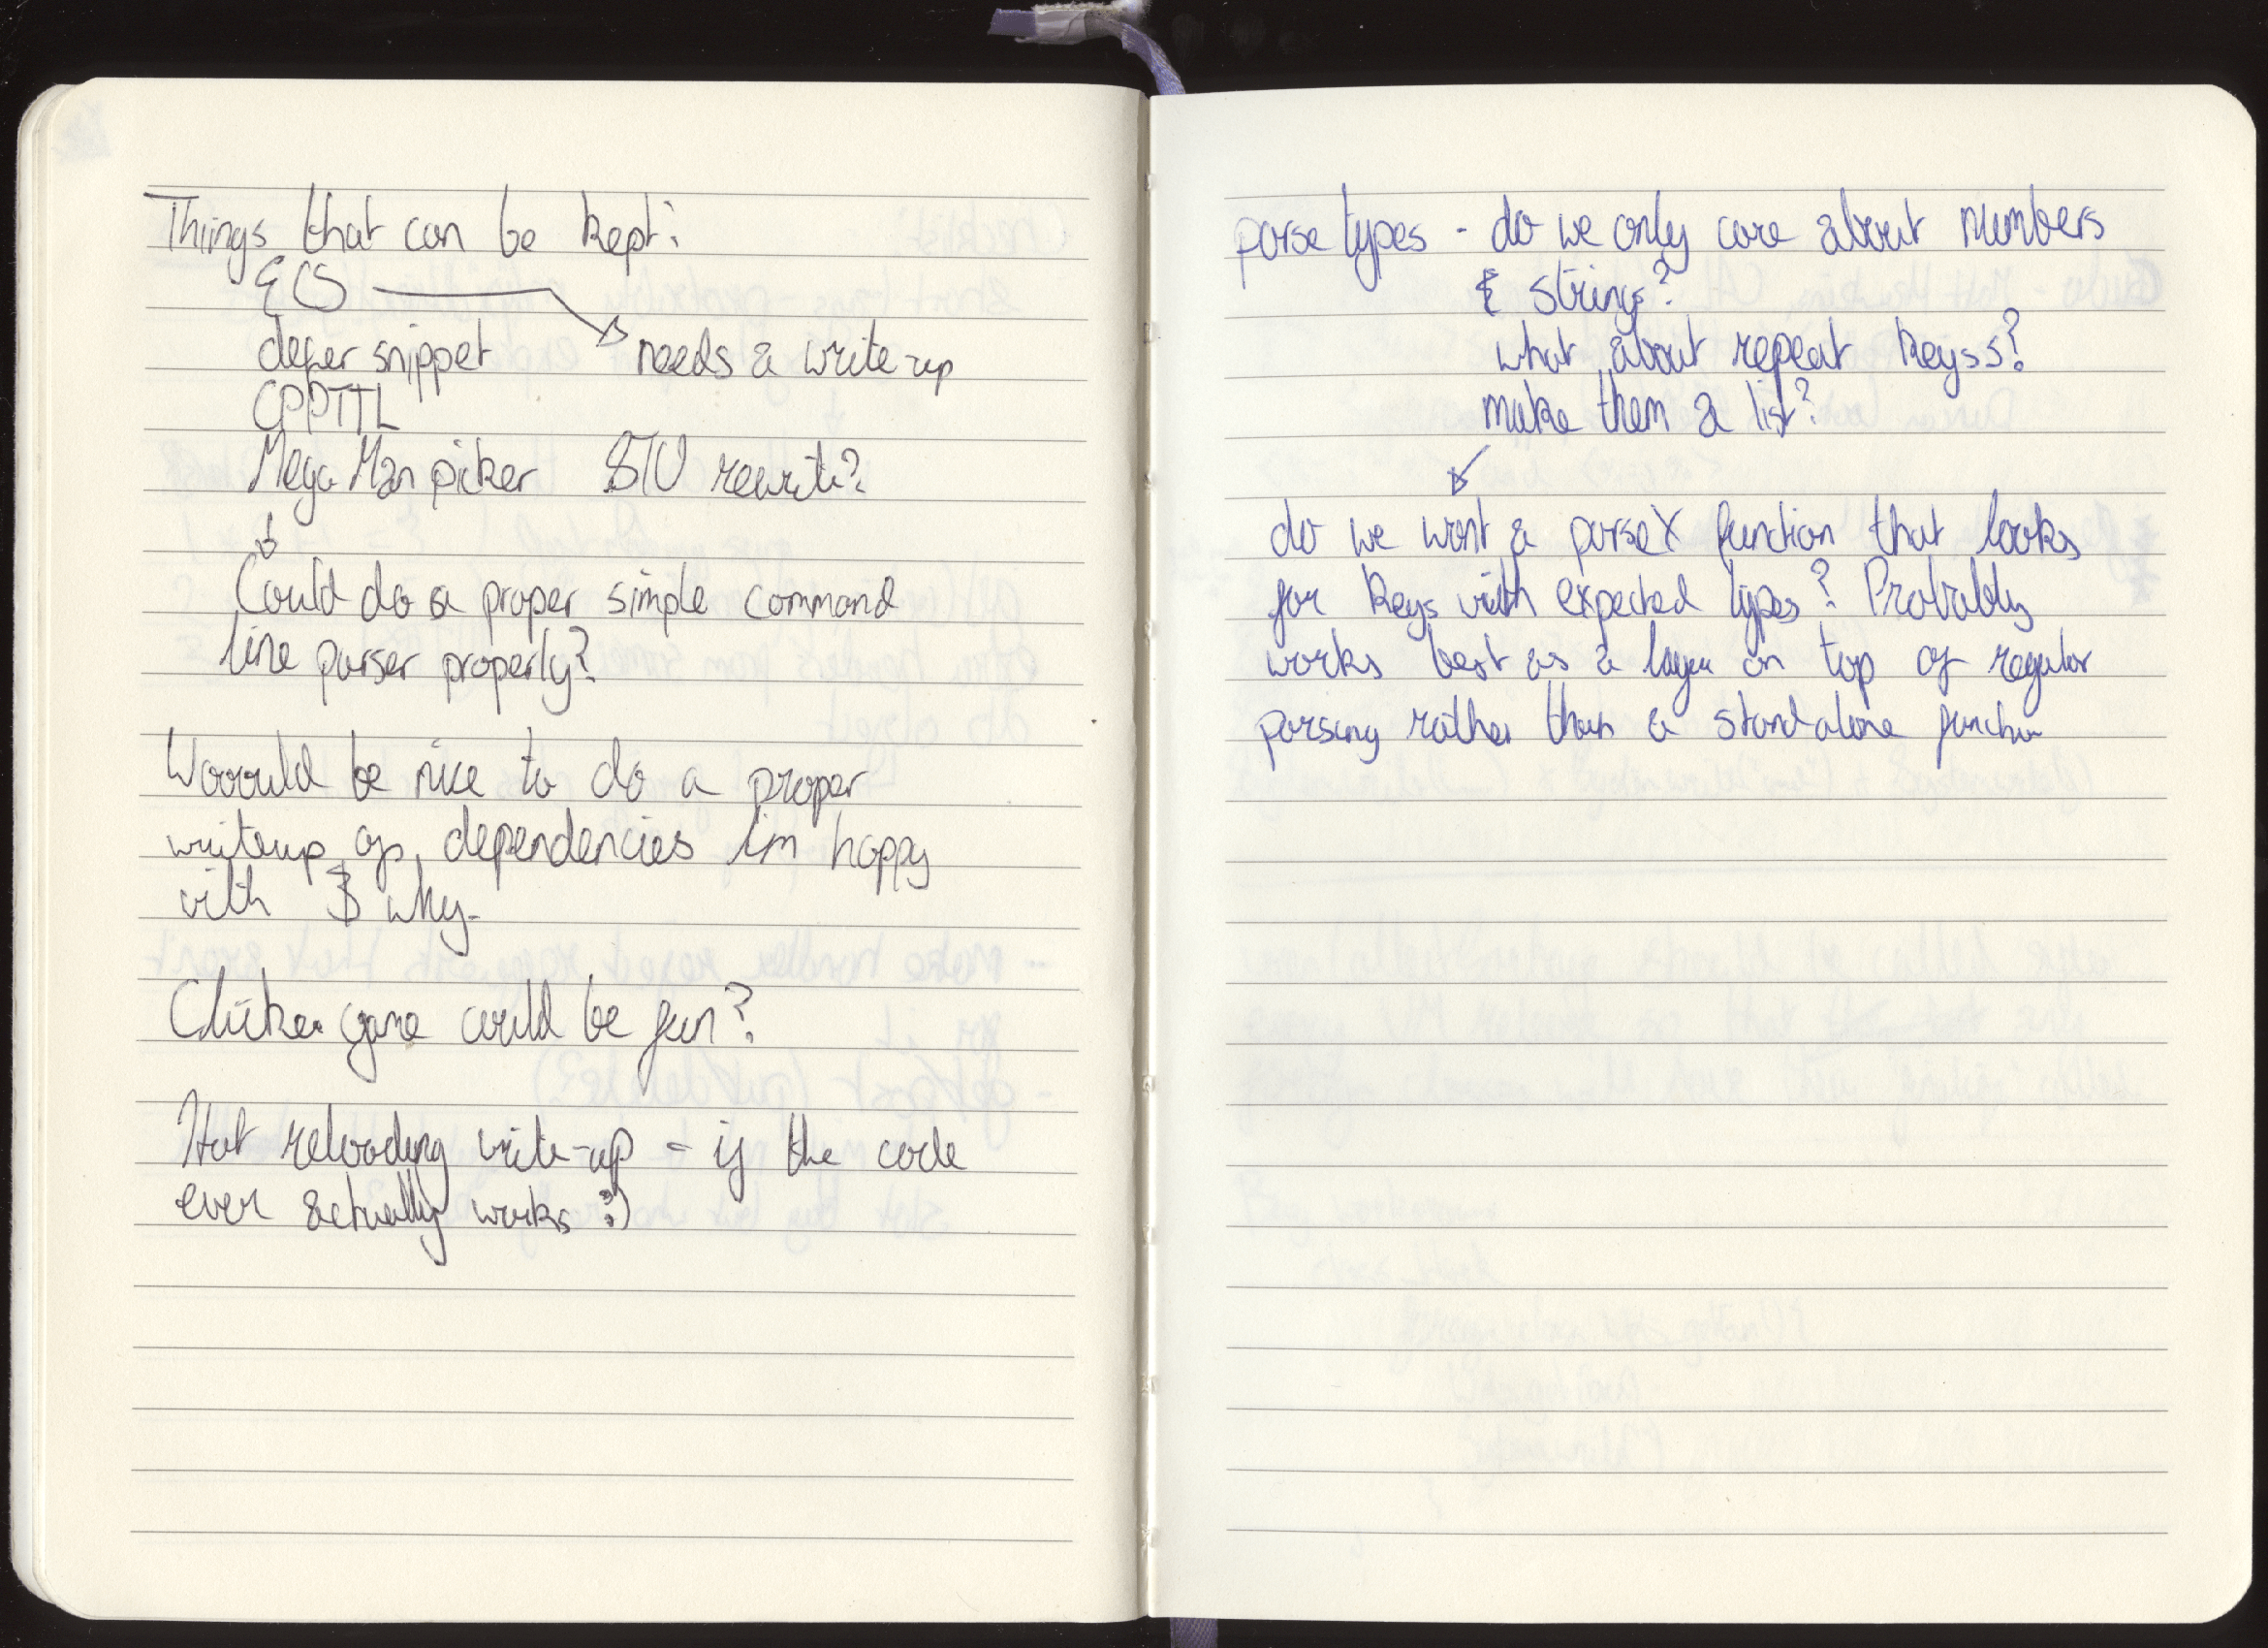 Things that can be kept:
ECS
defer snippet needs a write-up
CPPTTL
Mega Man picker rewrite?
Could do a proper simple command
line parser properly?
Wooould be nice to do a proper
writeup of dependencies im happy
with & why.
Clicker game could be fun?
Hot reloading write-up - if the code
ever actually works :)
parse types - do we only care about numbers
& strings?
what about repeat keyss?
make them a list?
do we want a parseX function that looks
for keys with expected types? Probably
works best as a layer on top of regular
parsing rather than a stand-alone function